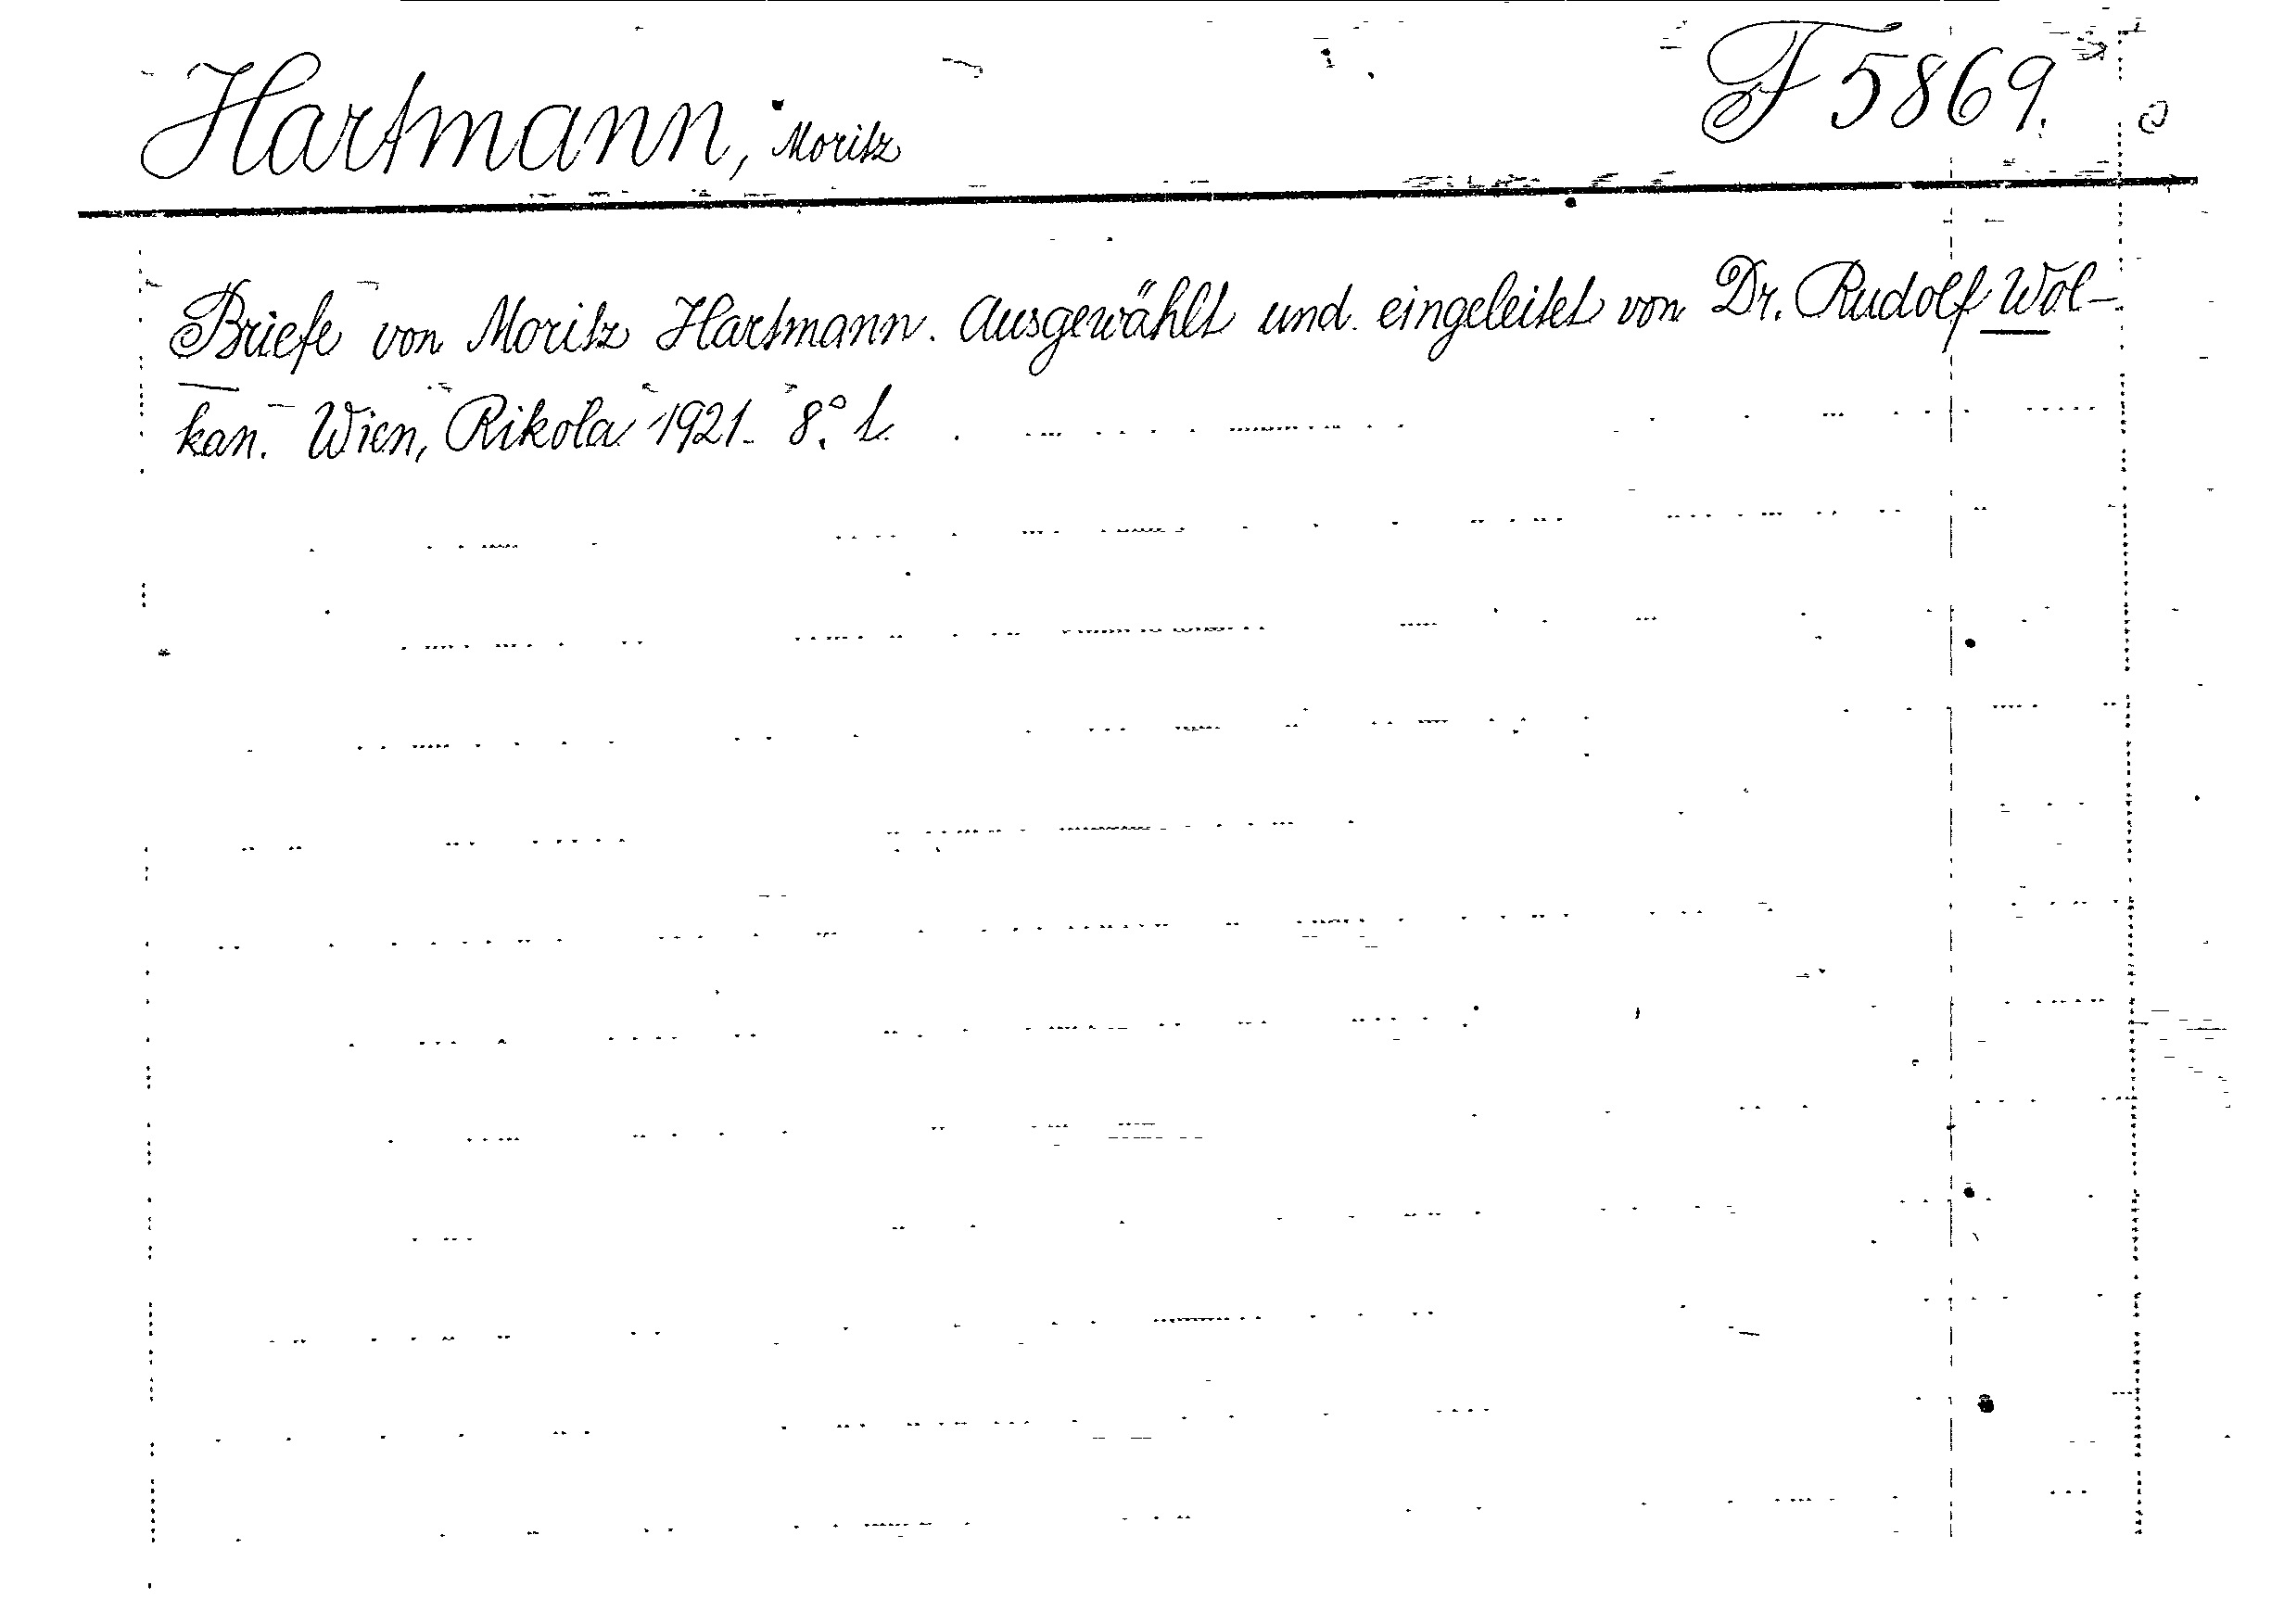 Hartmann, Moritz F 5869.
Briefe von Moritz Hartmann. Ausgewählt und eingeleitet von Dr. Rudolf Wol-
kan. Wien, Rikola 1921. 8.° L.